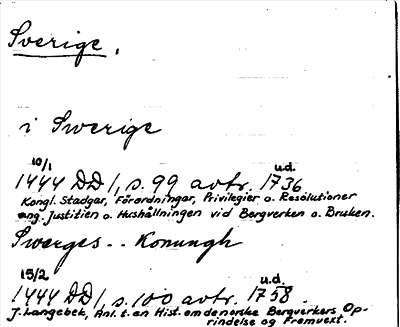 Sverige.
i Swerige
10/1 u.d.
1444 DD 1, s. 99 avtr. 1736
Kongl. Stadgar, Förordningar, Privilegier o. Resolutioner
ang. Justitien o. Hushållningen vid Bergverken o. Bruken.
Swerges -- Konungh
15/2 u.d.
1444 DD 1, s. 100 avtr. 1758.
J. Langebek, Anl. t. en Hist. om de norske Bergverkers Op-
rindelse og Fremvext.